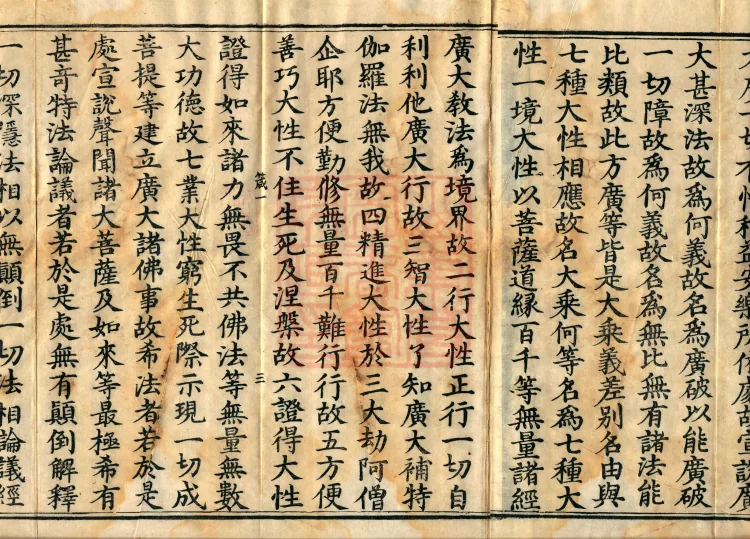 益安樂所依處故宣說廣
大甚深法故爲何義故名爲廣破以能廣破
一切障故爲何義故名爲無比無有諸法能
比類故此方廣等皆是大乘義差別名由與
七種大性相應故名大乘何等名爲七種大
性一境大性以菩薩道緣百千等無量諸經
廣大教法爲境界故二行大性正行一切自
利利他廣大行故三智大性了知廣大補特
伽羅法無我故四精進大性於三大劫阿僧
企耶方便勤修無量百千難行行故五方便
善巧大性不住生死及涅槃故六證得大性
箴一 三
證得如來諸力無畏不共佛法等無量無數
大功德故七業大性窮生死際示現一切成
菩提等建立廣大諸佛事故希法者若於是
處宣說聲聞諸大菩薩及如來等最極希有
甚奇特法論議者若於是處無有顛倒解釋
一切深隱法相以無顛倒一切法相論議經